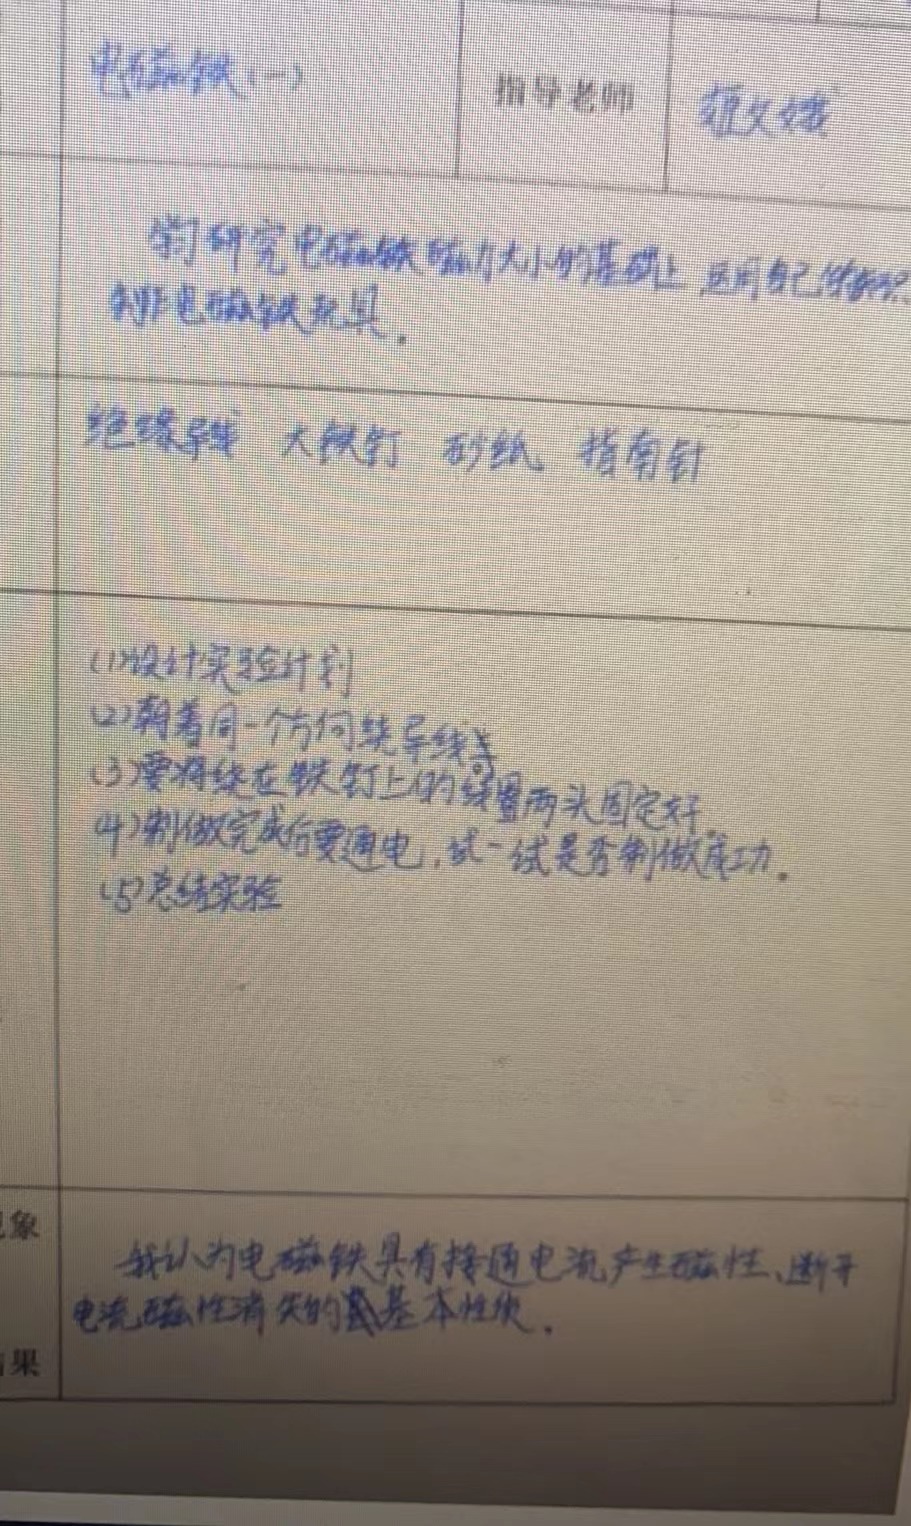 电磁铁(一) 指导老师 文娥
学习研究电磁铁磁力大小的基础上 运用自己
制作电磁铁玩具.
绝缘导线 大铁钉 砂纸 指南针
(1)设计实验计划
(2)朝着同一个方向绕导线
(3)要将绕在铁钉上的线圈两头固定好.
(4)制做完成后要通电,试一试是否制做成功.
(5)总结实验
象
我认为电磁铁具有接通电流产生磁性、断开
电流磁性消失的基本性质.
果